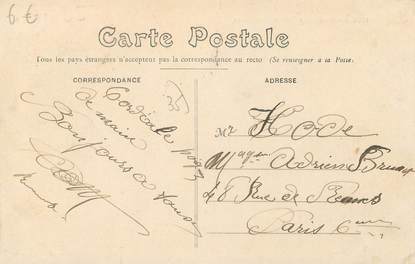 6€
Carte Postale
Tous les pays étrangers n'acceptent pas la correspondance au recto (Se renseigner à la Poste.
CORRESPONDANCE
ADRESSE
Cordiale poignée
de main
Bonjours à tous
Mr HODE
Adrien
48 Rue de
Paris 6eme